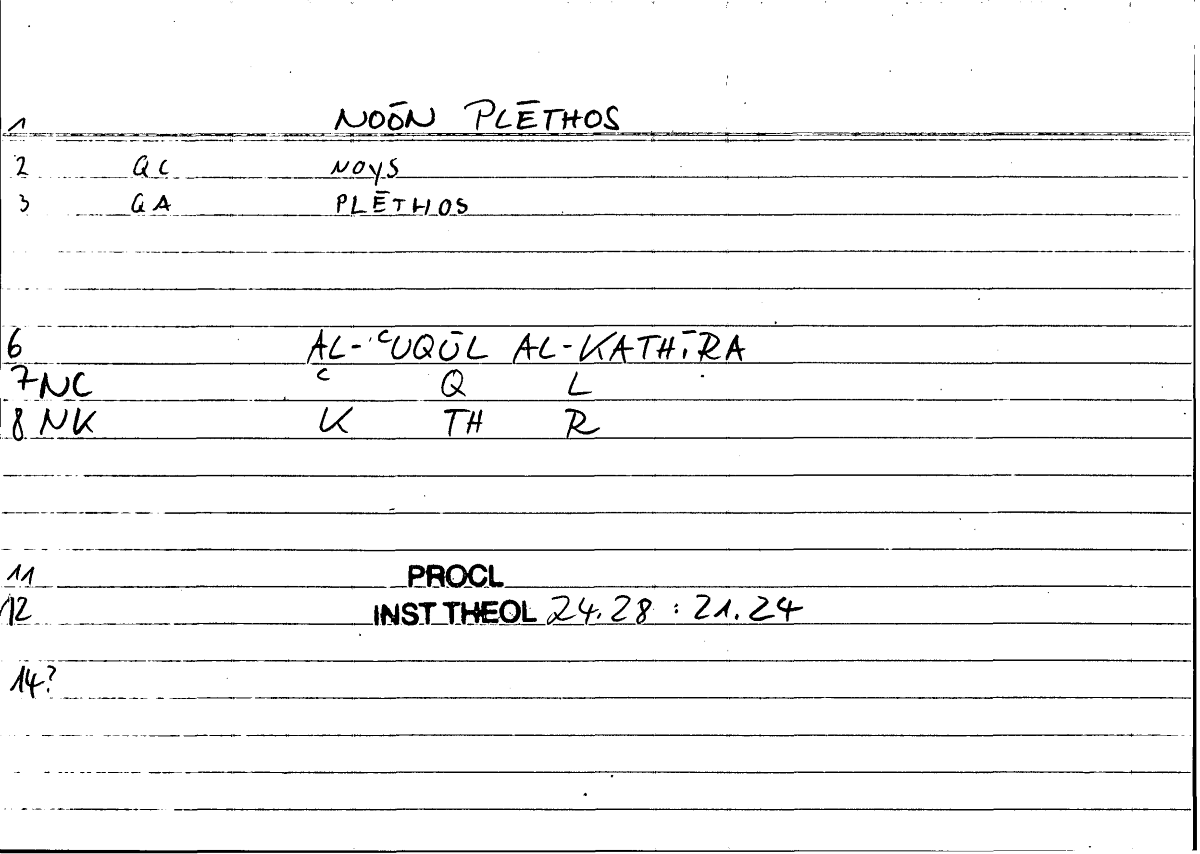 1 NOŌN PLĒTHOS
2 QC NOYS
3 QA PLĒTHOS
6 AL-ʿUQŪL AL-KATHĪRA
7 NC ʿ Q L
8 NK K TH R
11 PROCL
12 INST THEOL 24.28 : 21.24
14?